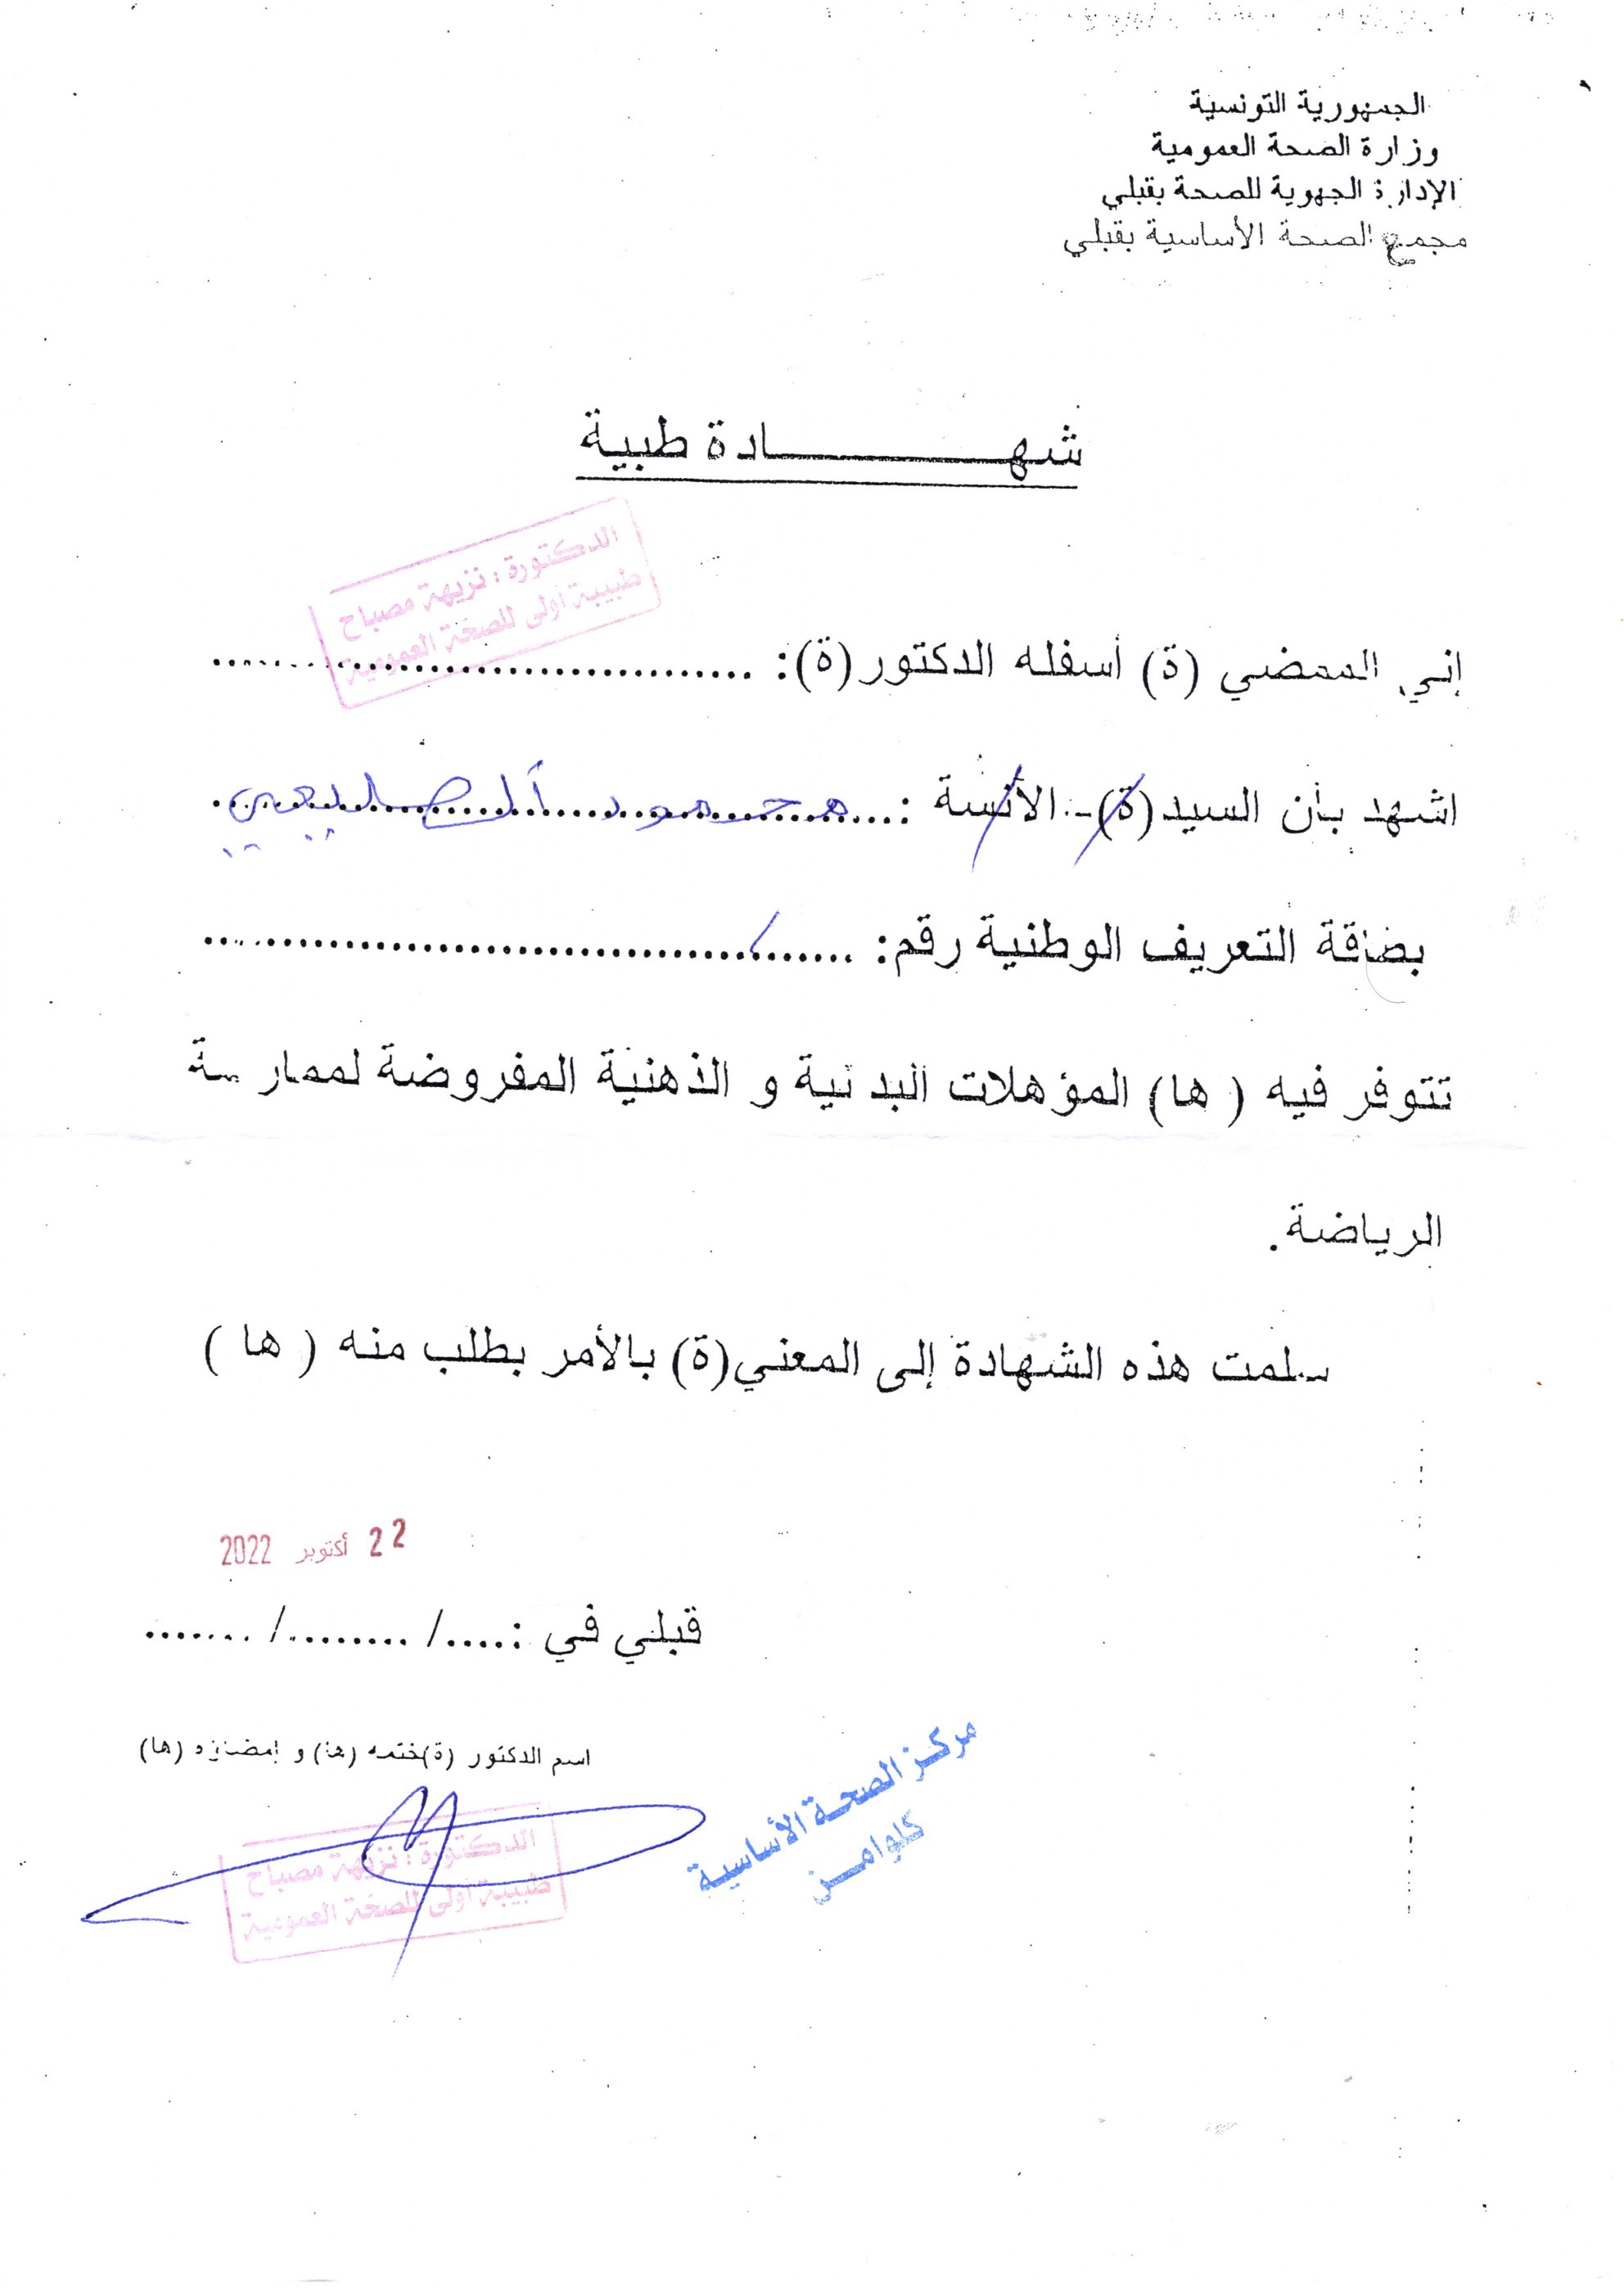 الجمهورية التونسية
وزارة الصحة العمومية
الإدارة الجهوية للصحة بقبلي
مجمع الصحة الأساسية بقبلي
شهادة طبية
الدكتورة : نزيهة مصباح
طبيبة أولى للصحة العمومية
إني الممضي (ة) أسفله الدكتور(ة): ........................................
اشهد بأن السيد(ة)- الآنسة : محمود
بطاقة التعريف الوطنية رقم: ........................................ /
تتوفر فيه ( ها) المؤهلات البدنية و الذهنية المفروضة لممارسة
الرياضة.
سلمت هذه الشهادة إلى المعني(ة) بالأمر بطلب منه ( ها )
22 أكتوبر 2022
قبلي في :..../ ......../ .......
اسم الدكتور (ة)ختمه (ها) و إمضاؤه (ها)
مركز الصحة الأساسية
كلوامن
الدكتورة : نزيهة مصباح
طبيبة أولى للصحة العمومية